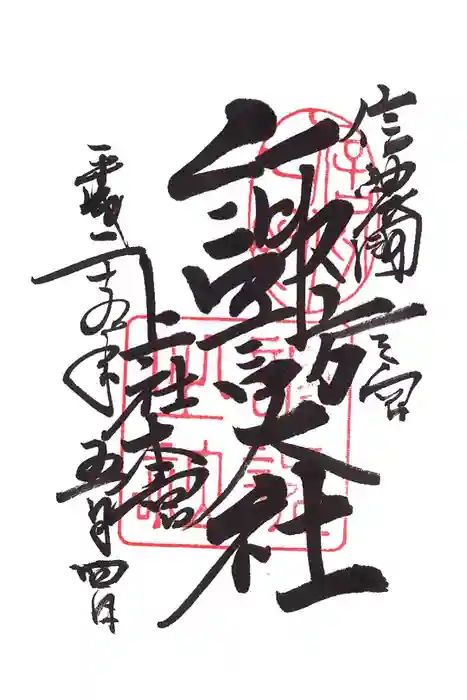 信濃國一之宮
諏訪大社
上社本宮
平成二十九年五月四日